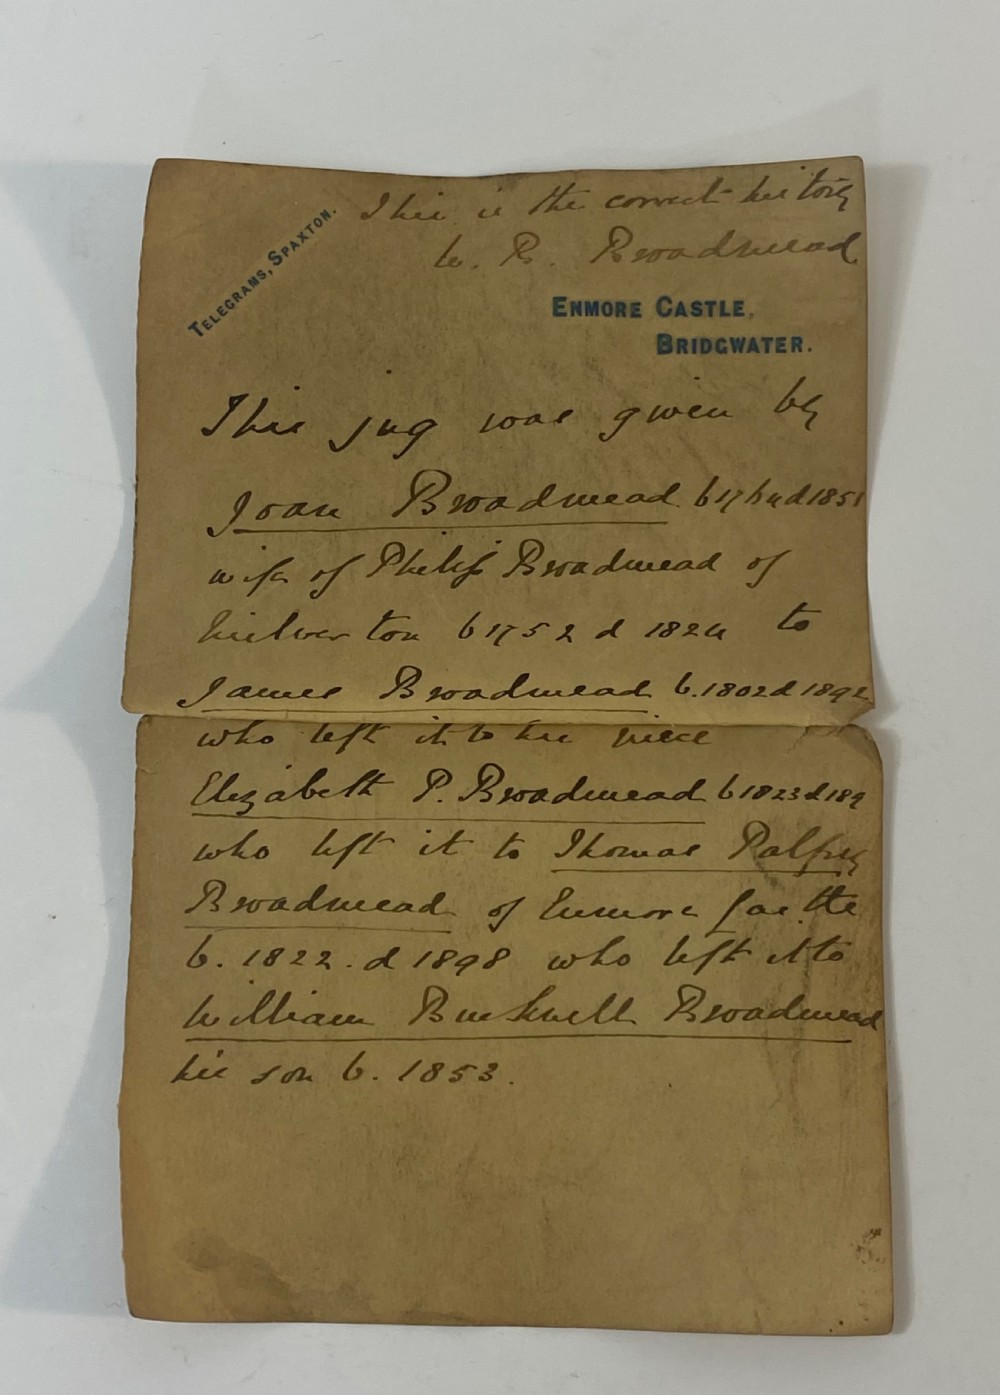 This is the correct history
W. B. Broadmead
TELEGRAMS, SPAXTON.
ENMORE CASTLE,
BRIDGWATER.
This jug was given by
Joan Broadmead b 1764 d 1851
wife of Philip Broadmead of
Milverton b 1752 d 1824 to
James Broadmead b. 1802 d 1892
who left it to his niece
Elizabeth P. Broadmead b 1823 d 189
who left it to Thomas Palfrey
Broadmead of Enmore Castle
b. 1822. d 1898 who left it to
William Bucknell Broadmead
his son b. 1853.